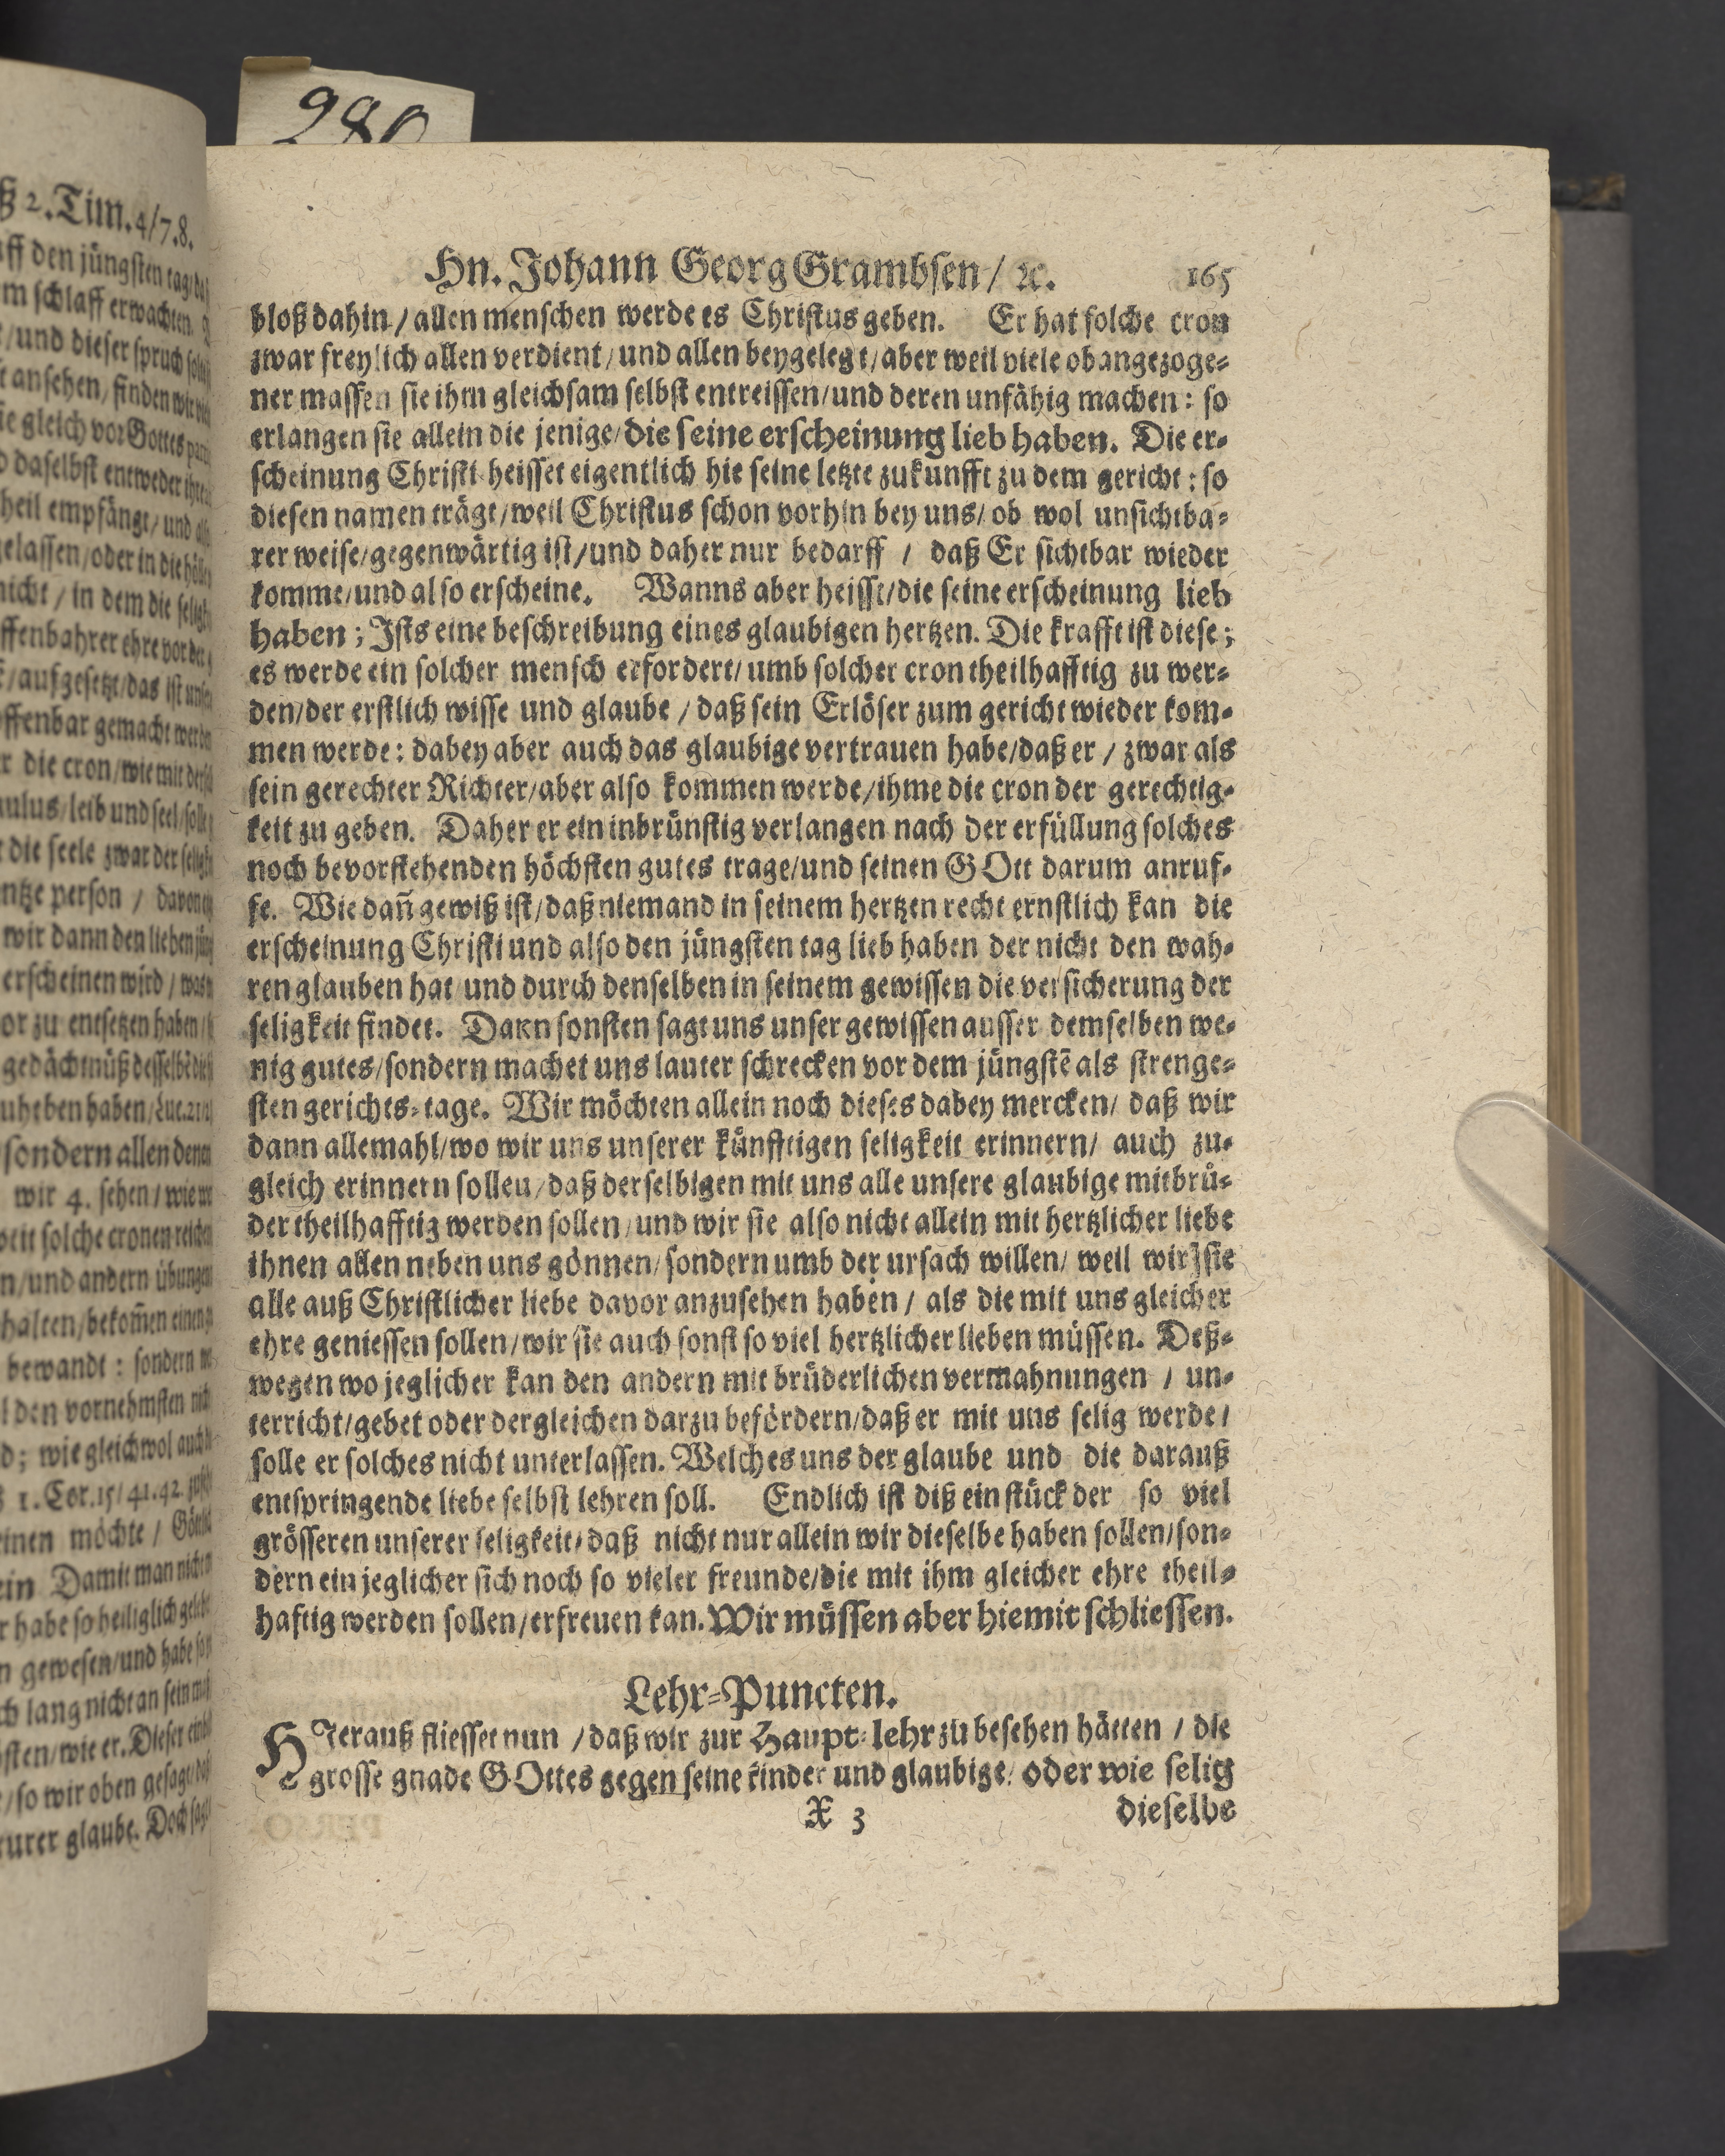 280
ß 2. Tim. 4/7.8.
Hn. Johann Georg Grambsen / ꝛc. 165
bloß dahin / allen menschen werde es Christus geben. Er hat solche cron
zwar freylich allen verdient / und allen beygelegt / aber weil viele obangezoge-
ner massen sie ihm gleichsam selbst entreissen / und deren unfähig machen : so
erlangen sie allein die jenige / die seine erscheinung lieb haben. Die er-
scheinung Christi heisset eigentlich hie seine letzte zukunfft zu dem gericht : so
diesen namen trägt / weil Christus schon vorhin bey uns / ob wol unsichtba-
rer weise / gegenwärtig ist / und daher nur bedarff / daß Er sichtbar wieder
komme / und also erscheine. Wanns aber heisst / die seine erscheinung lieb
haben ; Ists eine beschreibung eines glaubigen hertzen. Die krafft ist diese ;
es werde ein solcher mensch erfordert / umb solcher cron theilhafftig zu wer-
den / der erstlich wisse und glaube / daß sein Erlöser zum gericht wieder kom-
men werde : dabey aber auch das glaubige vertrauen habe / daß er / zwar als
sein gerechter Richter / aber also kommen werde / ihme die cron der gerechtig-
keit zu geben. Daher er ein inbrünstig verlangen nach der erfüllung solches
noch bevorstehenden höchsten gutes trage / und seinen GOtt darum anruf-
fe. Wie dañ gewiß ist / daß niemand in seinem hertzen recht ernstlich kan die
erscheinung Christi und also den jüngsten tag lieb haben der nicht den wah-
ren glauben hat und durch denselben in seinem gewissen die versicherung der
seligkeit findet. Dann sonsten sagt uns unser gewissen ausser demselben we-
nig gutes / sondern machet uns lauter schrecken vor dem jüngstē als strenge-
sten gerichts-tage. Wir möchten allein noch dieses dabey mercken / daß wir
dann allemahl / wo wir uns unserer künfftigen seligkeit erinnern / auch zu-
gleich erinnern sollen / daß derselbigen mit uns alle unsere glaubige mitbrü-
der theilhafftig werden sollen / und wir sie also nicht allein mit hertzlicher liebe
ihnen allen neben uns gönnen / sondern umb der ursach willen / weil wir sie
alle auß Christlicher liebe davor anzusehen haben / als die mit uns gleicher
ehre geniessen sollen / wir sie auch sonst so viel hertzlicher lieben müssen. Deß-
wegen wo jeglicher kan den andern mit brüderlichen vermahnungen / un-
terricht / gebet oder dergleichen darzu befördern / daß er mit uns selig werde /
solle er solches nicht unterlassen. Welches uns der glaube und die darauß
entspringende liebe selbst lehren soll. Endlich ist diß ein stück der so viel
grösseren unserer seligkeit / daß nicht nur allein wir dieselbe haben sollen / son-
dern ein jeglicher sich noch so vieler freunde / die mit ihm gleicher ehre theil-
haftig werden sollen / erfreuen kan. Wir müssen aber hiemit schliessen.
Lehr-Puncten.
HIerauß fliesset nun / daß wir zur Haupt-lehr zu besehen hätten / die
grosse gnade GOttes gegen seine kinder und glaubige / oder wie selig
X 3 dieselbe